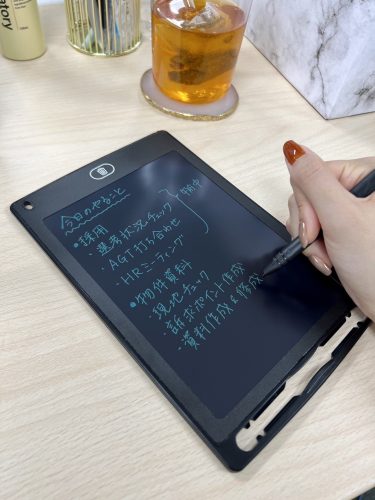 atory
今日のやること
•採用
・選考状況チェック
・AGT打ち合わせ
・HRミーティング
午前中
•物件資料
・現地チェック
・訴求ポイント作成
・資料作成&修成